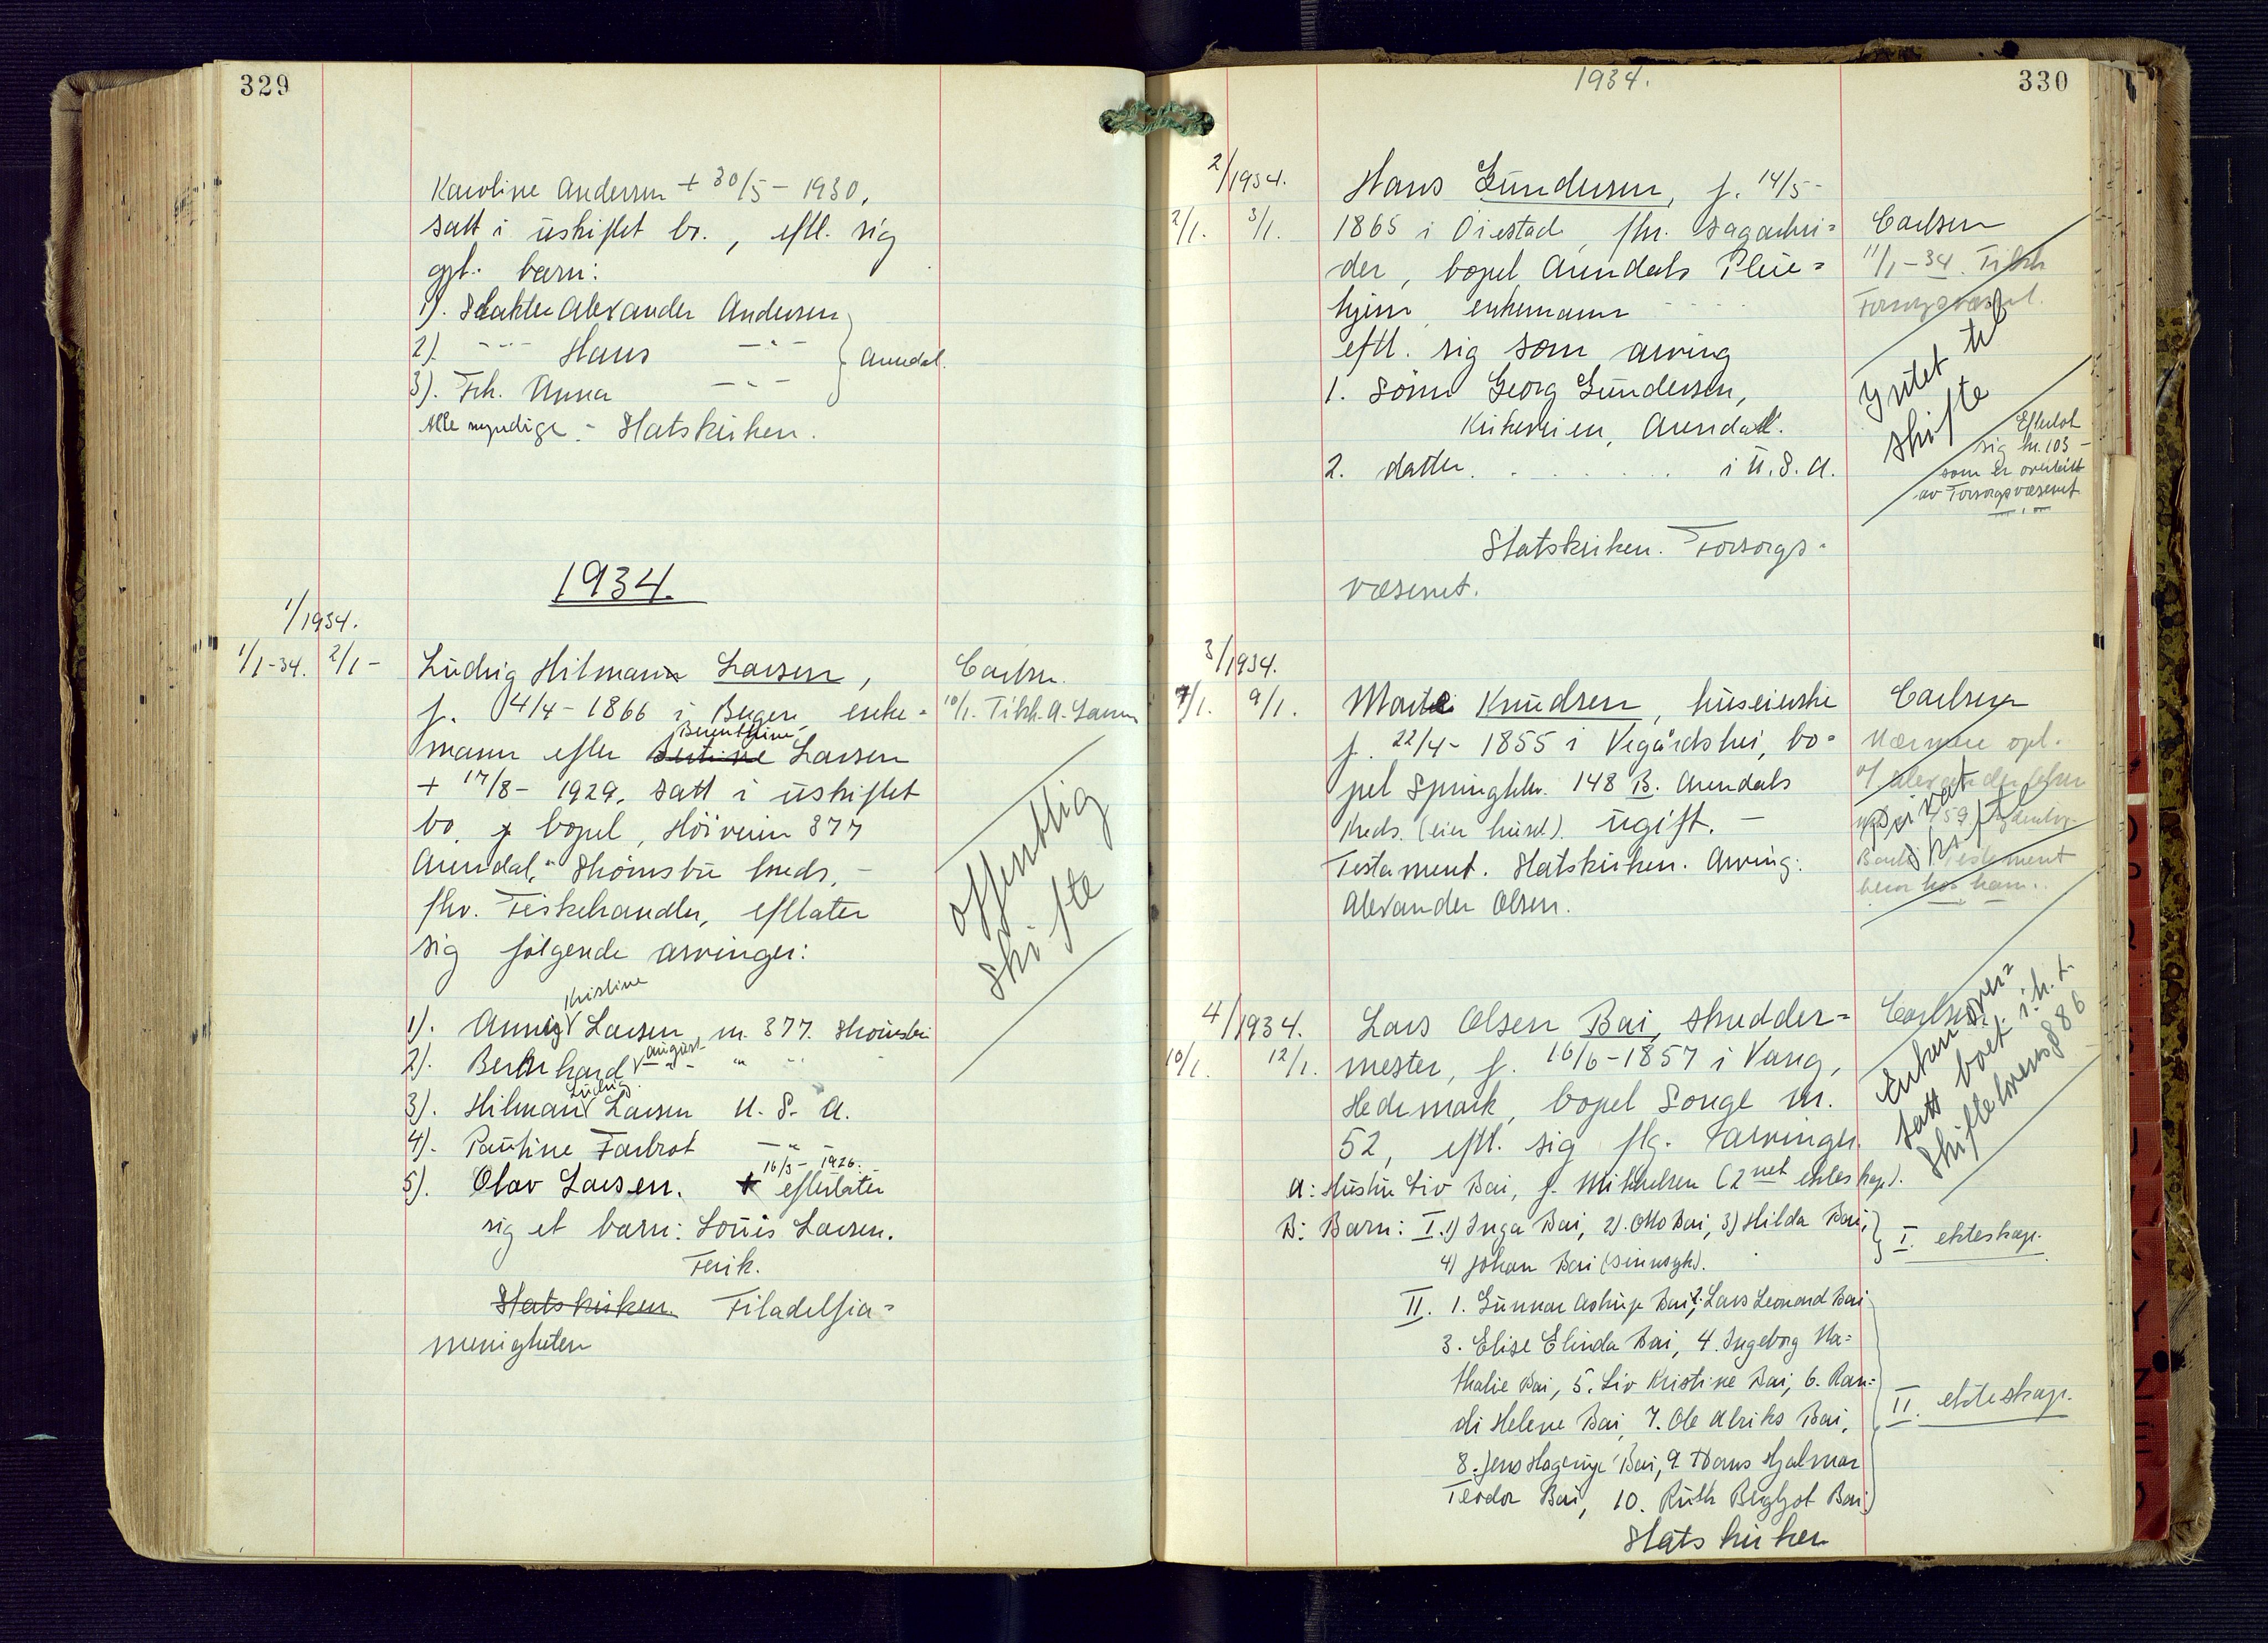 329
Karoline Andersen + 30/5 - 1930,
satt i uskiftet bo., eftl. sig
gpl. barn:
1). Slakter Alexander Andersen
2). - " - Hans - " -
3). Frk. Anna - " -
Arendal.
Alle myndige. - Statskirken.
1934.
1/1934.
1/1-34. 2/1 -
Ludvig Hilmann Larsen,
f. 14/4 - 1866 i Bergen, enke=
mann efter Berenthine Larsen
+ 17/8 - 1929, satt i uskiftet
bo, bopel, Höiveien 377
Arendal, Skömsbu kreds, -
fhv. Fiskehandler, efterlater
sig følgende arvinger:
1). Anna Kristine Larsen, nr. 377. Skömsbu
2). Bernhard August - " - " - " -
3). Hilman Ludvig Larsen U. S. A.
4). Pauline Farbrot - " -
5). Olav Larsen. + 16/3 - 1926. efterlater
sig et barn: Louis Larsen.
Ferik.
Statskirken. Filadelfia=
menigheten
Carlsen.
10/1. Tilk. A. Larsen
Offentlig
skifte
1934.
330
2/1934.
2/1. 3/1.
Hans Gundersen, f. 14/5 -
1865 i Öiestad, fhv. sagarbei=
der, bopel Arendals Pleie=
hjem, enkemann
eftl. sig som arving
1. Sönn Georg Gundersen,
Kirkeveien, Arendal.
2. datter. . . . . i U. S. A.
Statskirken. Forsorgs-
væsenet.
Carlsen
11/1-34. Tilk.
Forsorgsvæsenet.
Intet til
skifte
Efterlot
sig kr. 103 -
som er overtatt
av Forsorgsvæsenet
3/1934.
7/1. 9/1.
Marte Knudsen, huseierske
f. 22/4 - 1855 i Vegårdshei, bo=
pel Springkler. 148 B. Arendals
Kreds. (eier huset). ugift. -
Testament. Statskirken. Arving:
Alexander Olsen.
Carlsen
Nærmere opl.
av Alexander Olsen
Testament
beror hos ham.
privat
skifte
4/1934.
10/1. 12/1.
Lars Olsen Bai, skredder=
mester, f. 16/6 - 1857 i Vang,
Hedemark, bopel Songe nr.
52, eftl. sig flg. arvinger.
A: Hustru Liv Bai, f. Mikkelsen (2net ekteskap).
B: Barn: I. 1) Inga Bai, 2). Otto Bai, 3) Hilda Bai,
4) Johan Bai (sinnsyk).
I. ekteskap.
II. 1. Gunnar Astrup Bai, 2. Lars Leonard Bai
3. Elise Elinda Bai, 4. Ingeborg Na=
thalie Bai, 5. Liv Kristine Bai, 6. Ran=
di Helene Bai, 7. Ole Alriks Bai,
8. Jens Hagerup Bai, 9. Hans Hjalmar
Teodor Bai, 10. Ruth Bergljot Bai
II. ekteskap.
Statskirken
Carlsen
Enken over=
tatt boet i.h.t.
Skiftelovens § 86